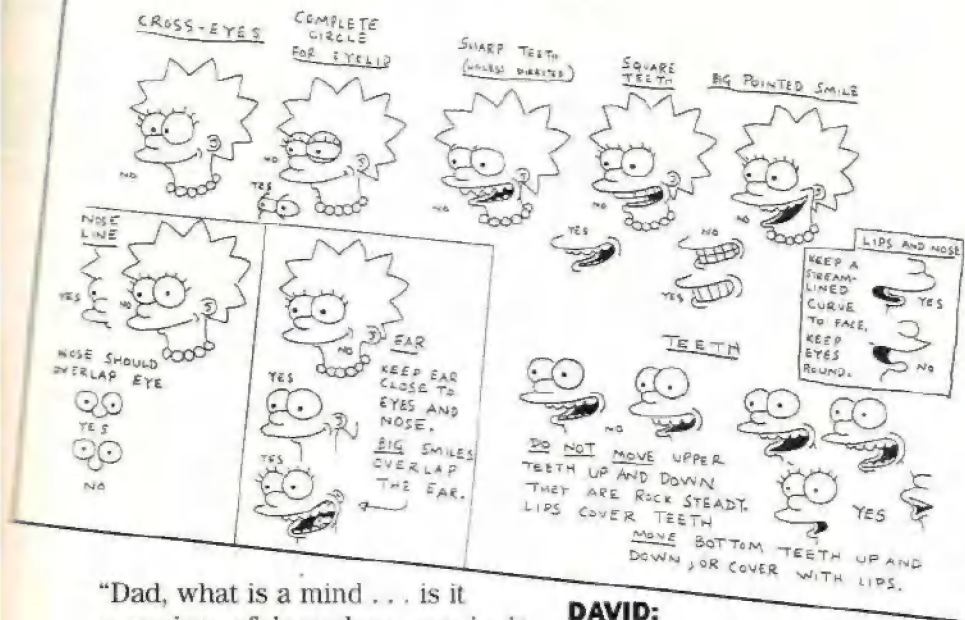 CROSS-EYES
NO
COMPLETE
CIRCLE
FOR EYELID
NO
YES
SHARP TEETH
(UNLESS DIRECTED)
NO
YES
SQUARE
TEETH
NO
NO
YES
BIG POINTED SMILE
NO
LIPS AND NOSE
KEEP A
STREAM-
LINED
CURVE
TO FACE,
KEEP
EYES
ROUND.
YES
NO
NOSE
LINE
YES
NO
NOSE SHOULD
OVERLAP EYE
YES
NO
NO
EAR
KEEP EAR
CLOSE TO
EYES AND
NOSE.
BIG SMILES
OVERLAP
THE EAR.
YES
YES
TEETH
NO
DO NOT MOVE UPPER
TEETH UP AND DOWN
THEY ARE ROCK STEADY.
LIPS COVER TEETH
YES
MOVE BOTTOM TEETH UP AND
DOWN, OR COVER WITH LIPS.
"Dad, what is a mind . . . is it
DAVID: